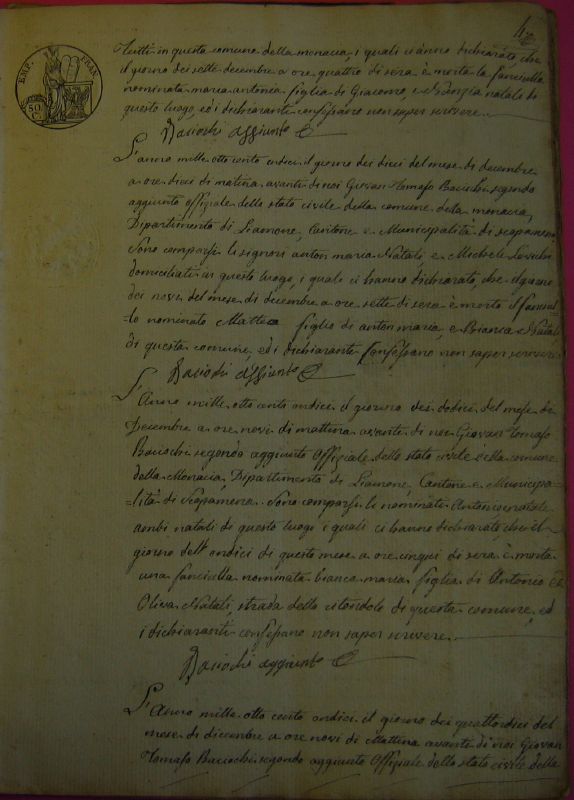 EMP. FRAN
50 C.
Tutti in questa comune della monacia, i quali ci anno dichiarato, che
il giorno dei sette decembre a ore quattro di sera è morta la fanciulla
nominata maria antonia figlia di Giacomo, e natali di
questo luogo, ed i dichiaranti confessano non saper scrivere
Baciochi aggiunto
L'anno mille otto cento undici il giorno dei dieci del mese di decembre
a ore dieci di matina avanti di noi Giovan Tomaso Baciochi segondo
aggiunto offiziale dello stato civile della comune della monacia,
Dipartimento di Liamone, Cantone e Municipalità di scopamena
Sono comparsi li signori anton maria Natali e Michele
domiciliati in questo luogo, i quali ci hanno dichiarato, che il giorno
dei nove del mese di decembre a ore sette di sera è morto il fanciul-
lo nominato Matteo figlio di anton maria, e Bianca Natali
di questa comune, ed i dichiaranti confessano non saper scrivere
Baciochi aggiunto
L'Anno mille otto cento undici il giorno dei dodici del mese di
Decembre a ore novi di mattina avanti di noi Giovan Tomaso
Baciochi segondo aggiunto Offiziale dello stato civile della comune
della Monacia, Dipartimento di Liamone, Cantone e Municipa-
lità di Scopamena. Sono comparsi li nominati
ambi natali di questo luogo i quali ci hanno dichiarato, che il
giorno dell'undici di questo mese a ore cinque di sera è morta
una fanciulla nominata bianca maria figlia di Antonio e
Oliva Natali, strada dello di questa comune, ed
i dichiaranti confessano non saper scrivere
Baciochi aggiunto
L'Anno mille otto cento undici il giorno dei quattordici del
mese di dicembre a ore novi di Mattina avanti di noi Giovan
Tomaso Baciochi segondo aggiunto Offiziale dello stato civile della